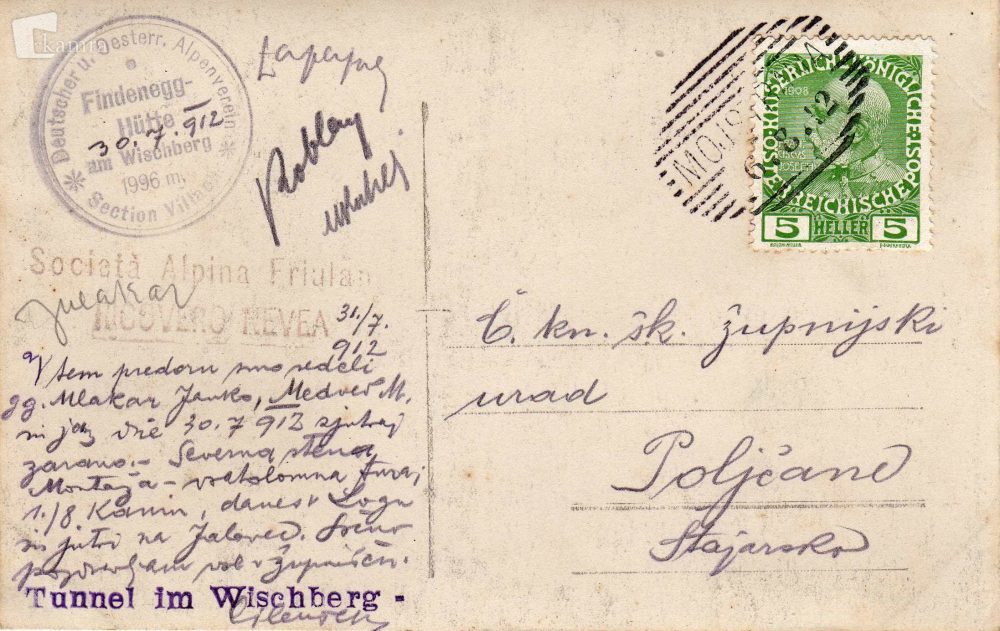 kamra
Deutscher u. Oesterr. Alpenverein
Findenegg-
Hütte
30.7.912
am Wischberg
1996 m.
Section Villach
Roblek
Società Alpina Friulan
RICOVERO NEVEA
31/7.
912
V tem predoru smo sedeli
gg. Mlakar Janko, Medved M.
in jaz dne 30.7 912 zjutraj
zarano.- Severna stena
Montaža - vratolomna tura;
1./8 Kanin, danes v Logu
in jutri na Jalovec. Srčno
pozdravljam vse v župnišču.
Tunnel im Wischberg -
MOJST A
6.8.12
KAISERLICHE KÖNIGLICHE
ÖSTERREICHISCHE POST
1908
5 HELLER 5
Č. kn. šk. župnijski
urad
Poljčane
Štajarsko